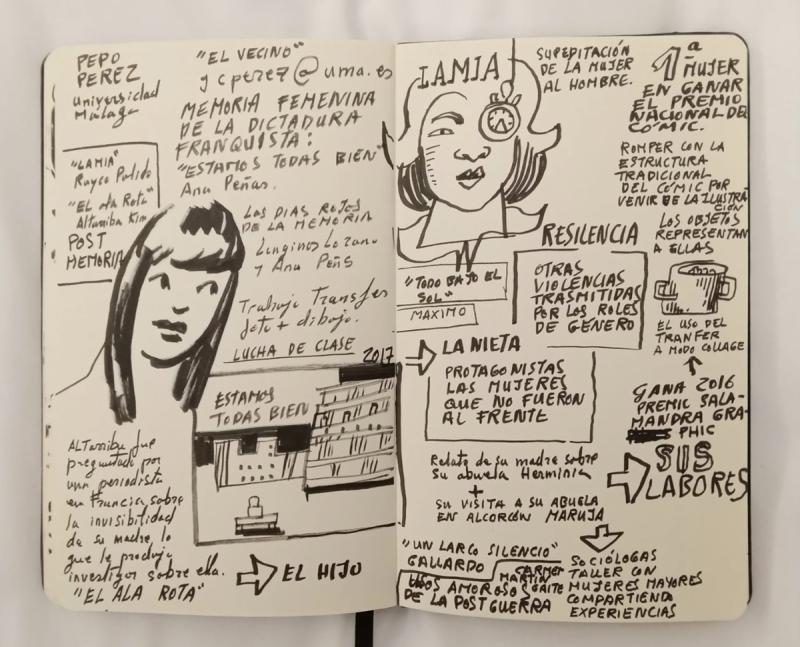 PEPO
PEREZ
Universidad
Málaga
"EL VECINO"
y cperez@uma.es
MEMORIA FEMENINA
DE LA DICTADURA
FRANQUISTA:
"ESTAMOS TODAS BIEN"
Ana Peñas.
"LAMIA"
Rayco Pulido
"El ala Rota"
Altarriba Kim
POST
MEMORIA
LOS DIAS ROJOS
DE LA MEMORIA
Longinos Lozano
y Ana Peñs
Trabajo Transfer
foto + dibujo.
LUCHA DE CLASE
2017
ESTAMOS
TODAS BIEN
ALTarriba fue
preguntado por
una periodista
en Francia sobre
la invisibilidad
de su madre, lo
que le produjo
investigar sobre ella.
"EL ALA ROTA"
EL HIJO
LAMIA
SUPEDITACIÓN
DE LA MUJER
AL HOMBRE.
1ª
MUJER
EN GANAR
EL PREMIO
NACIONAL DE
COMIC.
ROMPER CON LA
ESTRUCTURA
TRADICIONAL
DEL COMIC POR
VENIR DE LA ILUSTRA
CIÓN
LOS OBJETOS
REPRESENTAN
A ELLAS
EL USO DEL
TRANFER
A MODO COLLAGE
RESILENCIA
OTRAS
VIOLENCIAS
TRASMITIDAS
POR LOS ROLES
DE GÉNERO
"TODO BAJO EL
SOL"
MAXIMO
LA NIETA
PROTAGONISTAS
LAS MUJERES
QUE NO FUERON
AL FRENTE
GANA 2016
PREMIO SALA-
MANDRA GRA-
PHIC
SUS
LABORES
Relato de su madre sobre
su abuela Herminia
+
SU VISITA A SU ABUELA
EN ALCORCÓN MARUJA
"UN LARGO SILENCIO"
GALLARDO
CARMEN
MARTIN
GAITE
USOS AMOROSOS
DE LA POSTGUERRA
SOCIÓLOGAS
TALLER CON
MUJERES MAYORES
COMPARTIENDO
EXPERIENCIAS